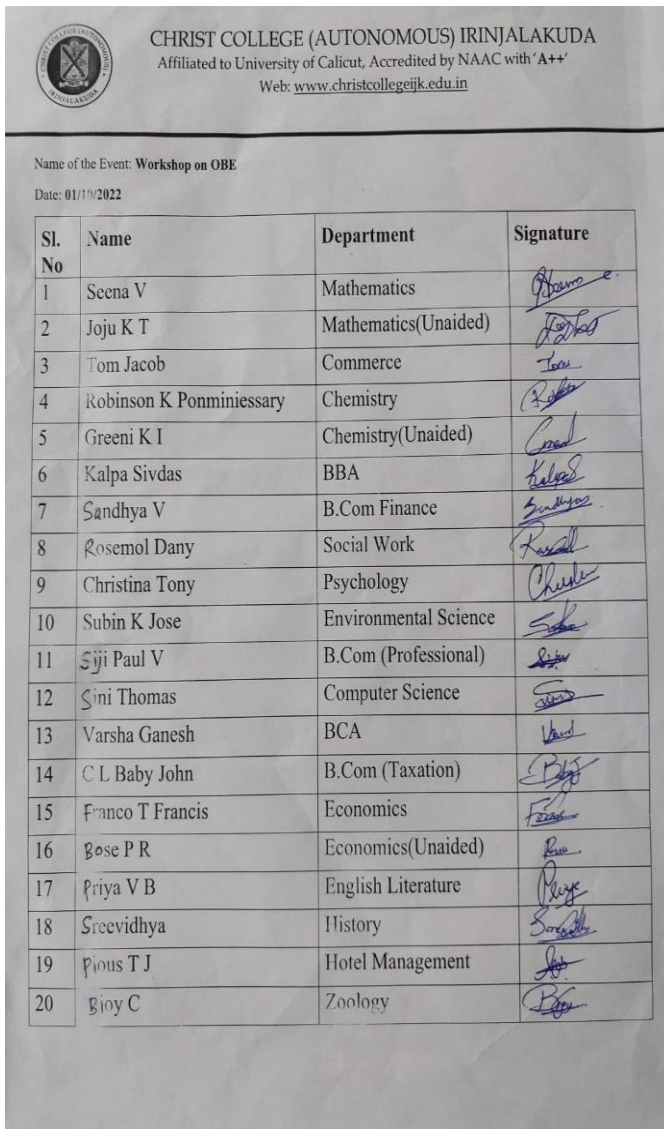 CHRIST COLLEGE (AUTONOMOUS) IRINJALAKUDA
Affiliated to University of Calicut, Accredited by NAAC with 'A++'
Web: www.christcollegeijk.edu.in
Name of the Event: Workshop on OBE
Date: 01/10/2022
Sl. No Name Department Signature
1 Seena V Mathematics
2 Joju K T Mathematics(Unaided)
3 Tom Jacob Commerce
4 Robinson K Ponminiessary Chemistry
5 Greeni K I Chemistry(Unaided)
6 Kalpa Sivdas BBA
7 Sandhya V B.Com Finance
8 Rosemol Dany Social Work
9 Christina Tony Psychology
10 Subin K Jose Environmental Science
11 Siji Paul V B.Com (Professional)
12 Sini Thomas Computer Science
13 Varsha Ganesh BCA
14 C L Baby John B.Com (Taxation)
15 Franco T Francis Economics
16 Bose P R Economics(Unaided)
17 Priya V B English Literature
18 Sreevidhya History
19 Pious T J Hotel Management
20 Bioy C Zoology